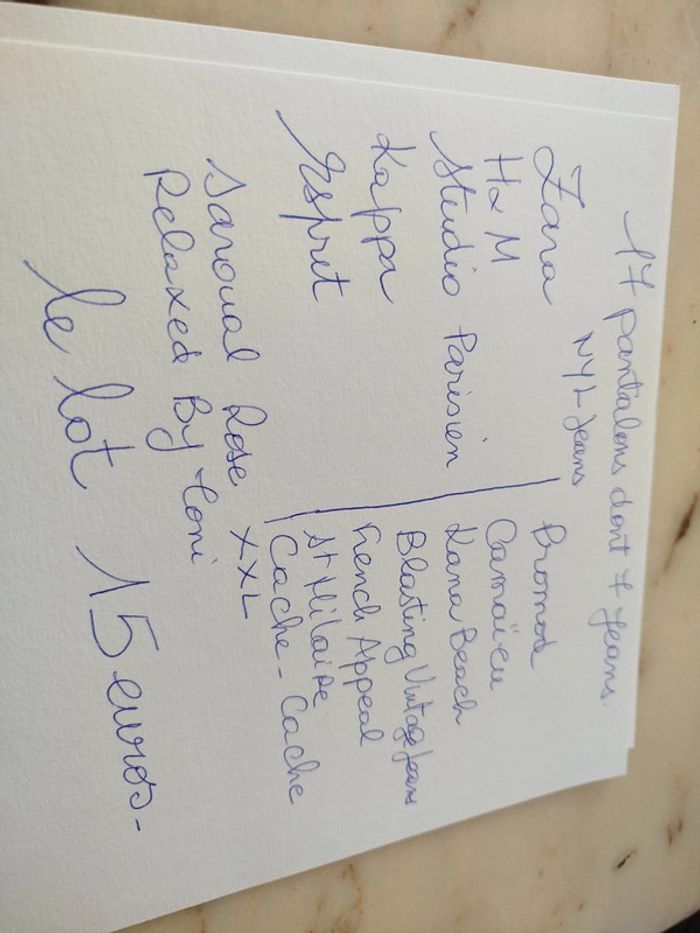 17 pantalons dont 7 jeans.
NYL jeans
Zara
H & M
Studio Parisien
Kappa
Esprit
Promod
Camaïeu
Kana Beach
Blasting Vintage Jeans
French Appeal
St Hilaire
Cache-Cache
Saroual Rose XXL
Relaxed By Toni
le lot 15 euros-